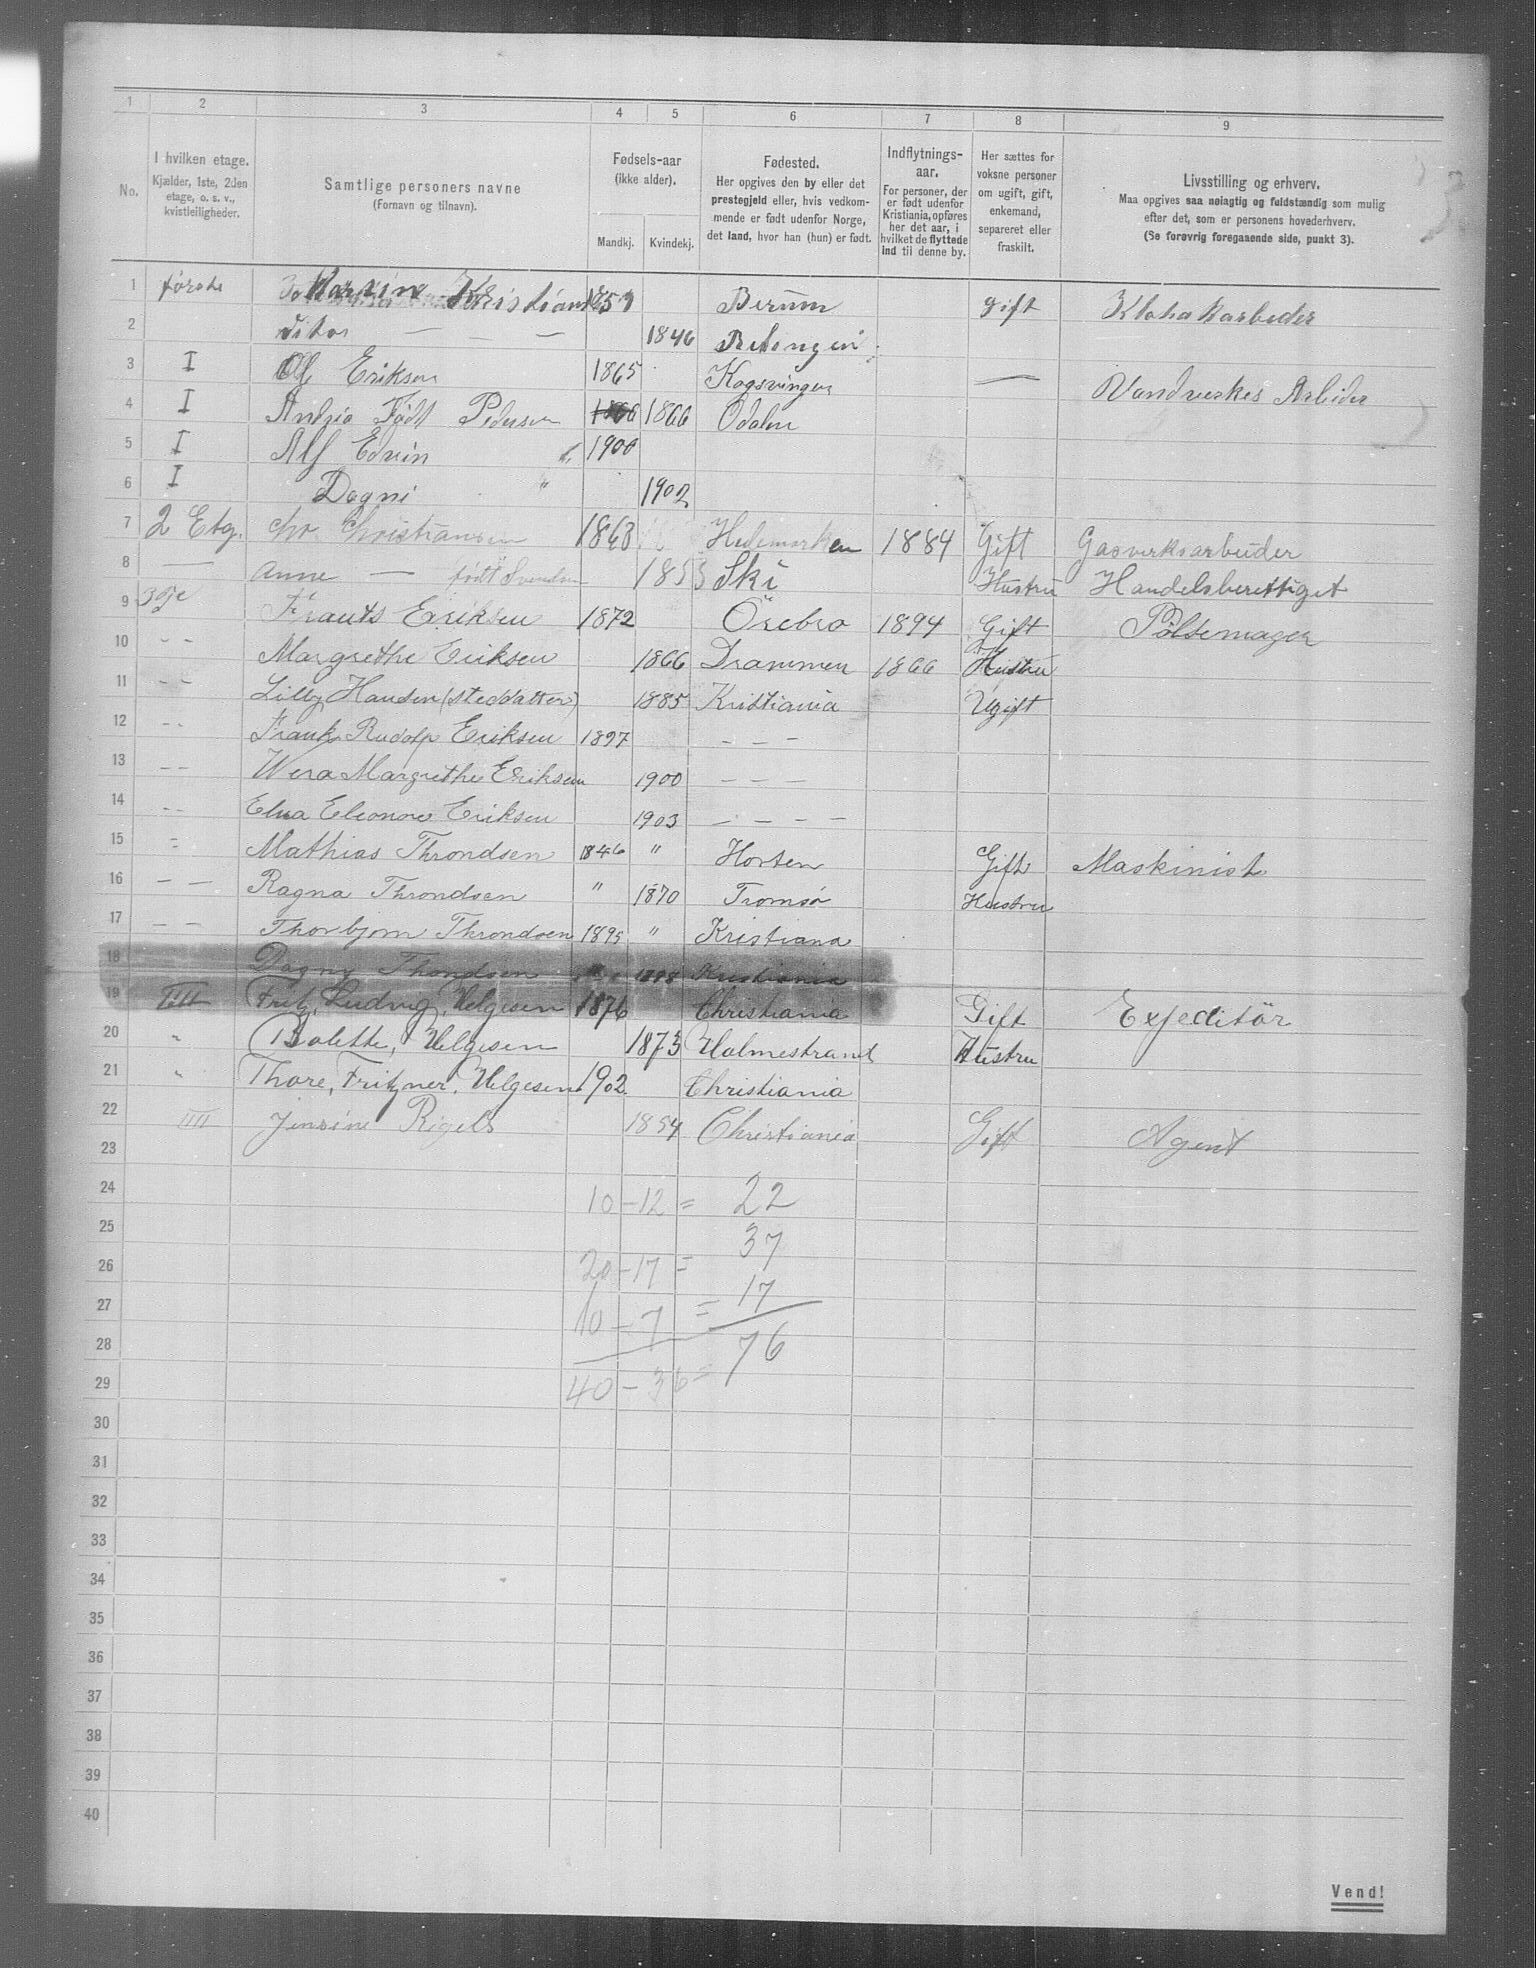 1 2 3 4 5 6 7 8 9
No.
I hvilken etage.
Kjælder, 1ste, 2den
etage, o. s. v.,
kvistleiligheder.
Samtlige personers navne
(Fornavn og tilnavn).
Fødsels-aar
(ikke alder).
Mandkj. Kvindekj.
Fødested.
Her opgives den by eller det
prestegjeld eller, hvis vedkom-
mende er født udenfor Norge,
det land, hvor han (hun) er født.
Indflytnings-
aar.
For personer, der
er født udenfor
Kristiania, opføres
her det aar, i
hvilket de flyttede
ind til denne by.
Her sættes for
voksne personer
om ugift, gift,
enkemand,
separeret eller
fraskilt.
Livsstilling og erhverv.
Maa opgives saa nøiagtig og fuldstændig som mulig
efter det, som er personens hovederhverv.
(Se forøvrig foregaaende side, punkt 3).
1 første Berum gift
2 — — 1846
3 I Ole Eriksen 1865 — Vandverkes Arbeider
4 I Født Pedersen 1866 Odalen
5 I Alf Edvin " 1900
6 I Dagni " 1902
7 2 Etg. Chr Christiansen 1863 Hedemarken 1884 Gift Gasverksarbeider
8 — Anne — født Svendsen 1853 Ski Hustru Handelsberettiget
9 3die Frants Eriksen 1872 Örebro 1894 Gift Pölsemager
10 - - Margrethe Eriksen 1866 Drammen 1866 Hustru
11 - - Lilly Hansen (steddatter) 1885 Kristiania Ugift
12 - - Frank Rudolf Eriksen 1897 — — —
13 - - Wera Margrethe Eriksen 1900 — — —
14 - - Elna Eleonore Eriksen 1903 — — — —
15 - Mathias Throndsen 1846 " Horten Gift Maskinist
16 — — Ragna Throndsen " 1870 Tromsø Hustru
17 — — Thorbjørn Throndsen 1895 " Kristiana
18 Dagny Thondsen " 1898 Kristiania
19 IIII Fritz, Ludvig, Helgesen 1876 Christiania Gift Expeditör
20 " Bolette, Helgesen 1873 Holmestrand Hustru
21 " Thore, Fritzner, Helgesen 1902 Christiania
22 IIII Jensine Rigels 1854 Christiania Gift Agent
23
24 10 - 12 = 22
25
26 20 - 17 = 37
27 10 - 7 = 17
28
29 40 - 36 = 76
30
31
32
33
34
35
36
37
38
39
40
Vend!